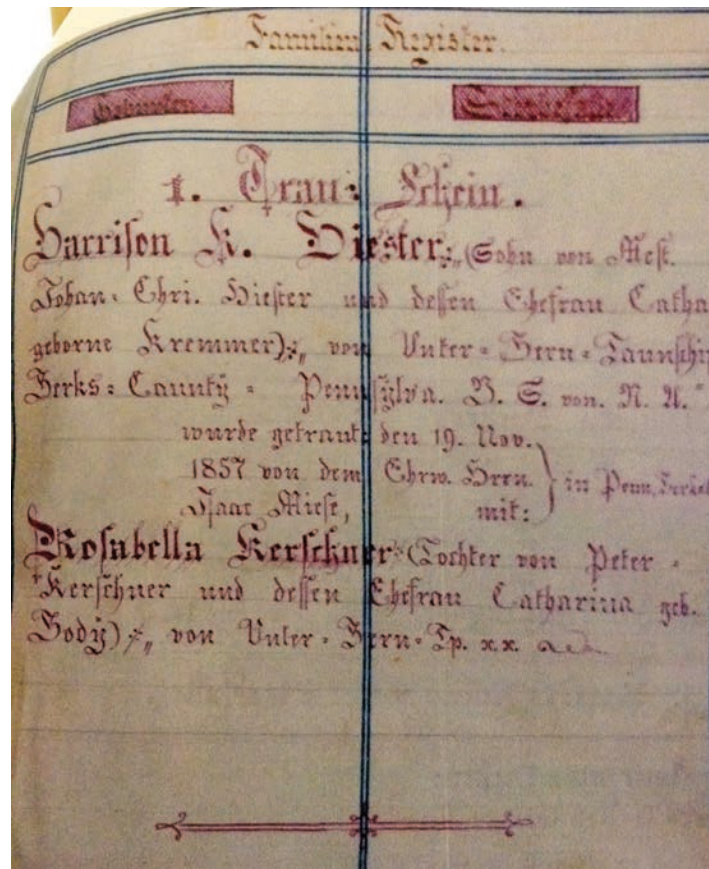 Familien Register.
Geburten
1. Trau: Schein.
Harrison K. Hiester;„(Sohn von Mest.
Johan: Chri. Hiester und dessen Ehefrau Catha
geborne Kremmer);„ von Unter = Bern = Taunschip
Berks: Caunty = Pennsylva. V. S. von. N. A."
wurde getraut: den 19. Nov.
1857 von dem Ehrw. Hrrn. } in Penn,
Isaac Miese, mit:
Rosabella Kerschner (Tochter von Peter =
Kerschner und dessen Ehefrau Catharina geb.
Body) „ von Unter = Bern = Tp. x.x.